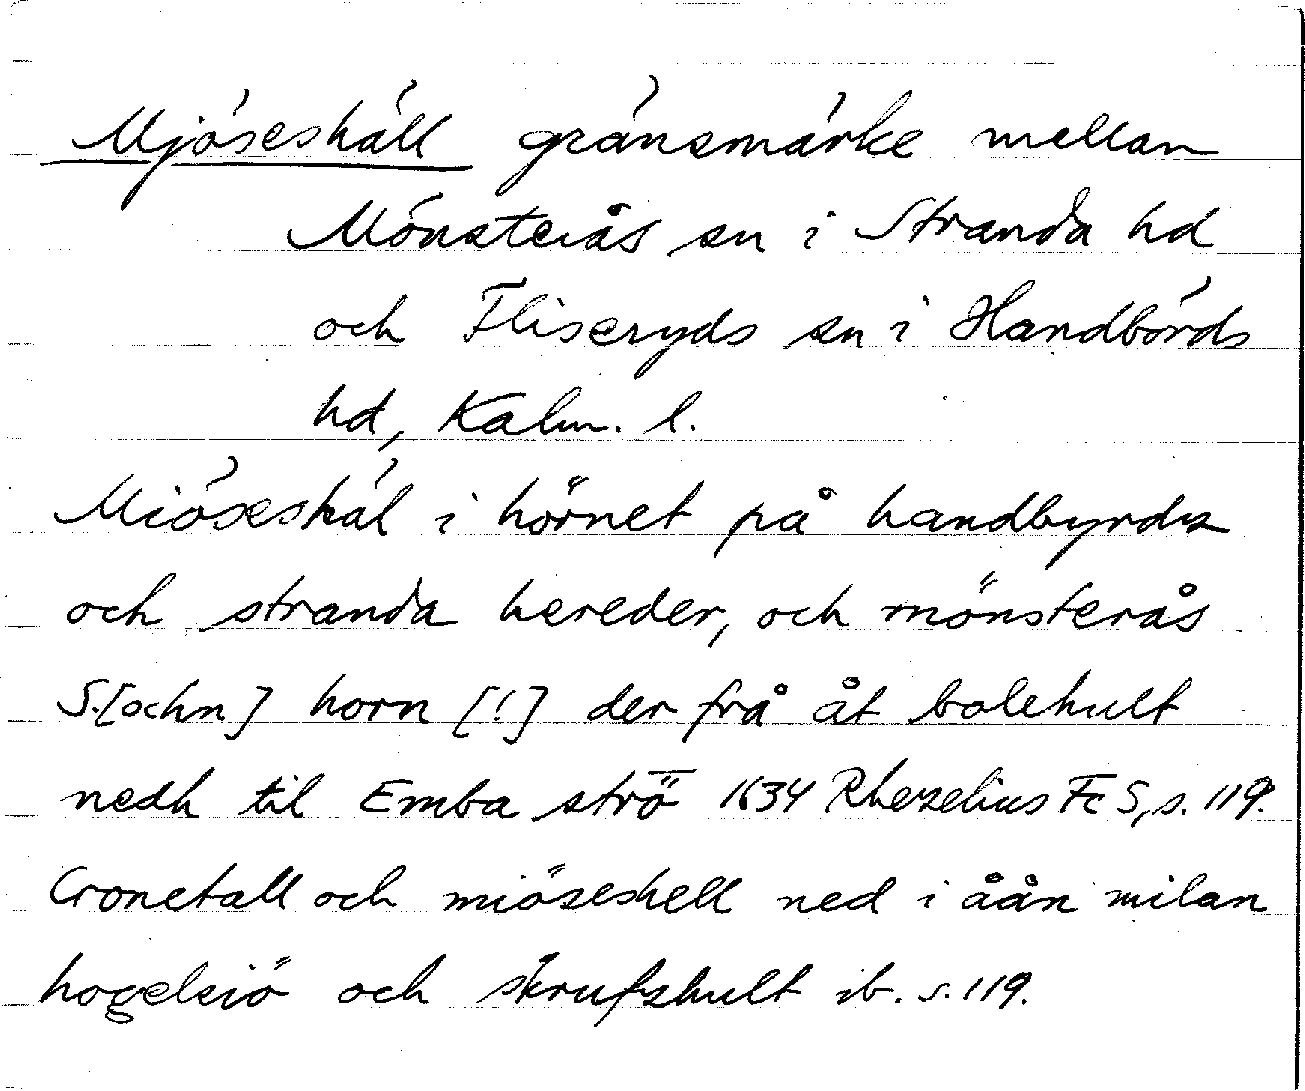 Mjöseshäll gränsmärke mellan
Mönsterås sn i Stranda hd
och Fliseryds sn i Handbörds
hd, Kalm. l.
Miöseshäl i hörnet på handbyrdz
och stranda hereder, och mönsterås
S.[ochn] horn [!] der frå åt bolehult
nedh til Emba strö̅ 1634 Rhezelius Fc 5, s. 119.
Cronetall och miöseshell ned i åån milan
hogelsiö och skrufshult ib. s. 119.